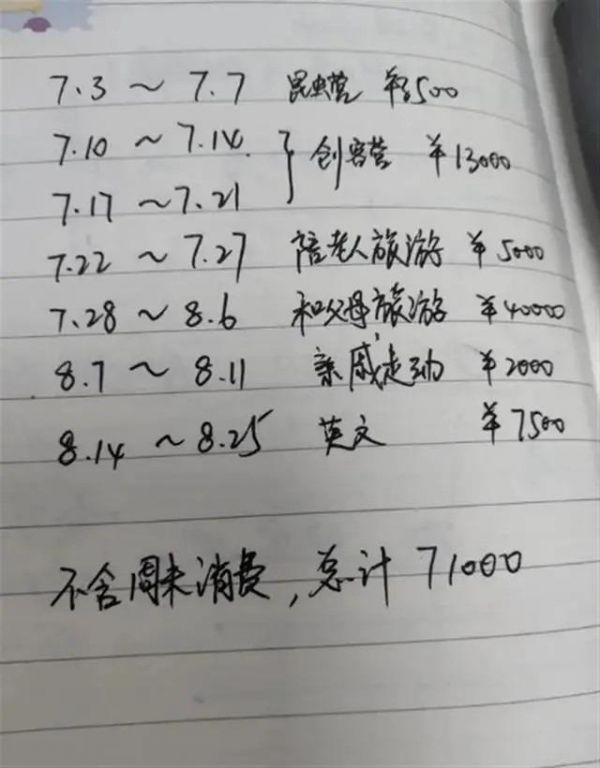 7.3 ~ 7.7 昆虫营 ¥3500
7.10 ~ 7.14 } 创客营 ¥13000
7.17 ~ 7.21
7.22 ~ 7.27 陪老人旅游 ¥5000
7.28 ~ 8.6 和父母旅游 ¥40000
8.7 ~ 8.11 亲戚走动 ¥2000
8.14 ~ 8.25 英文 ¥7500
不含周末消费，总计 71000